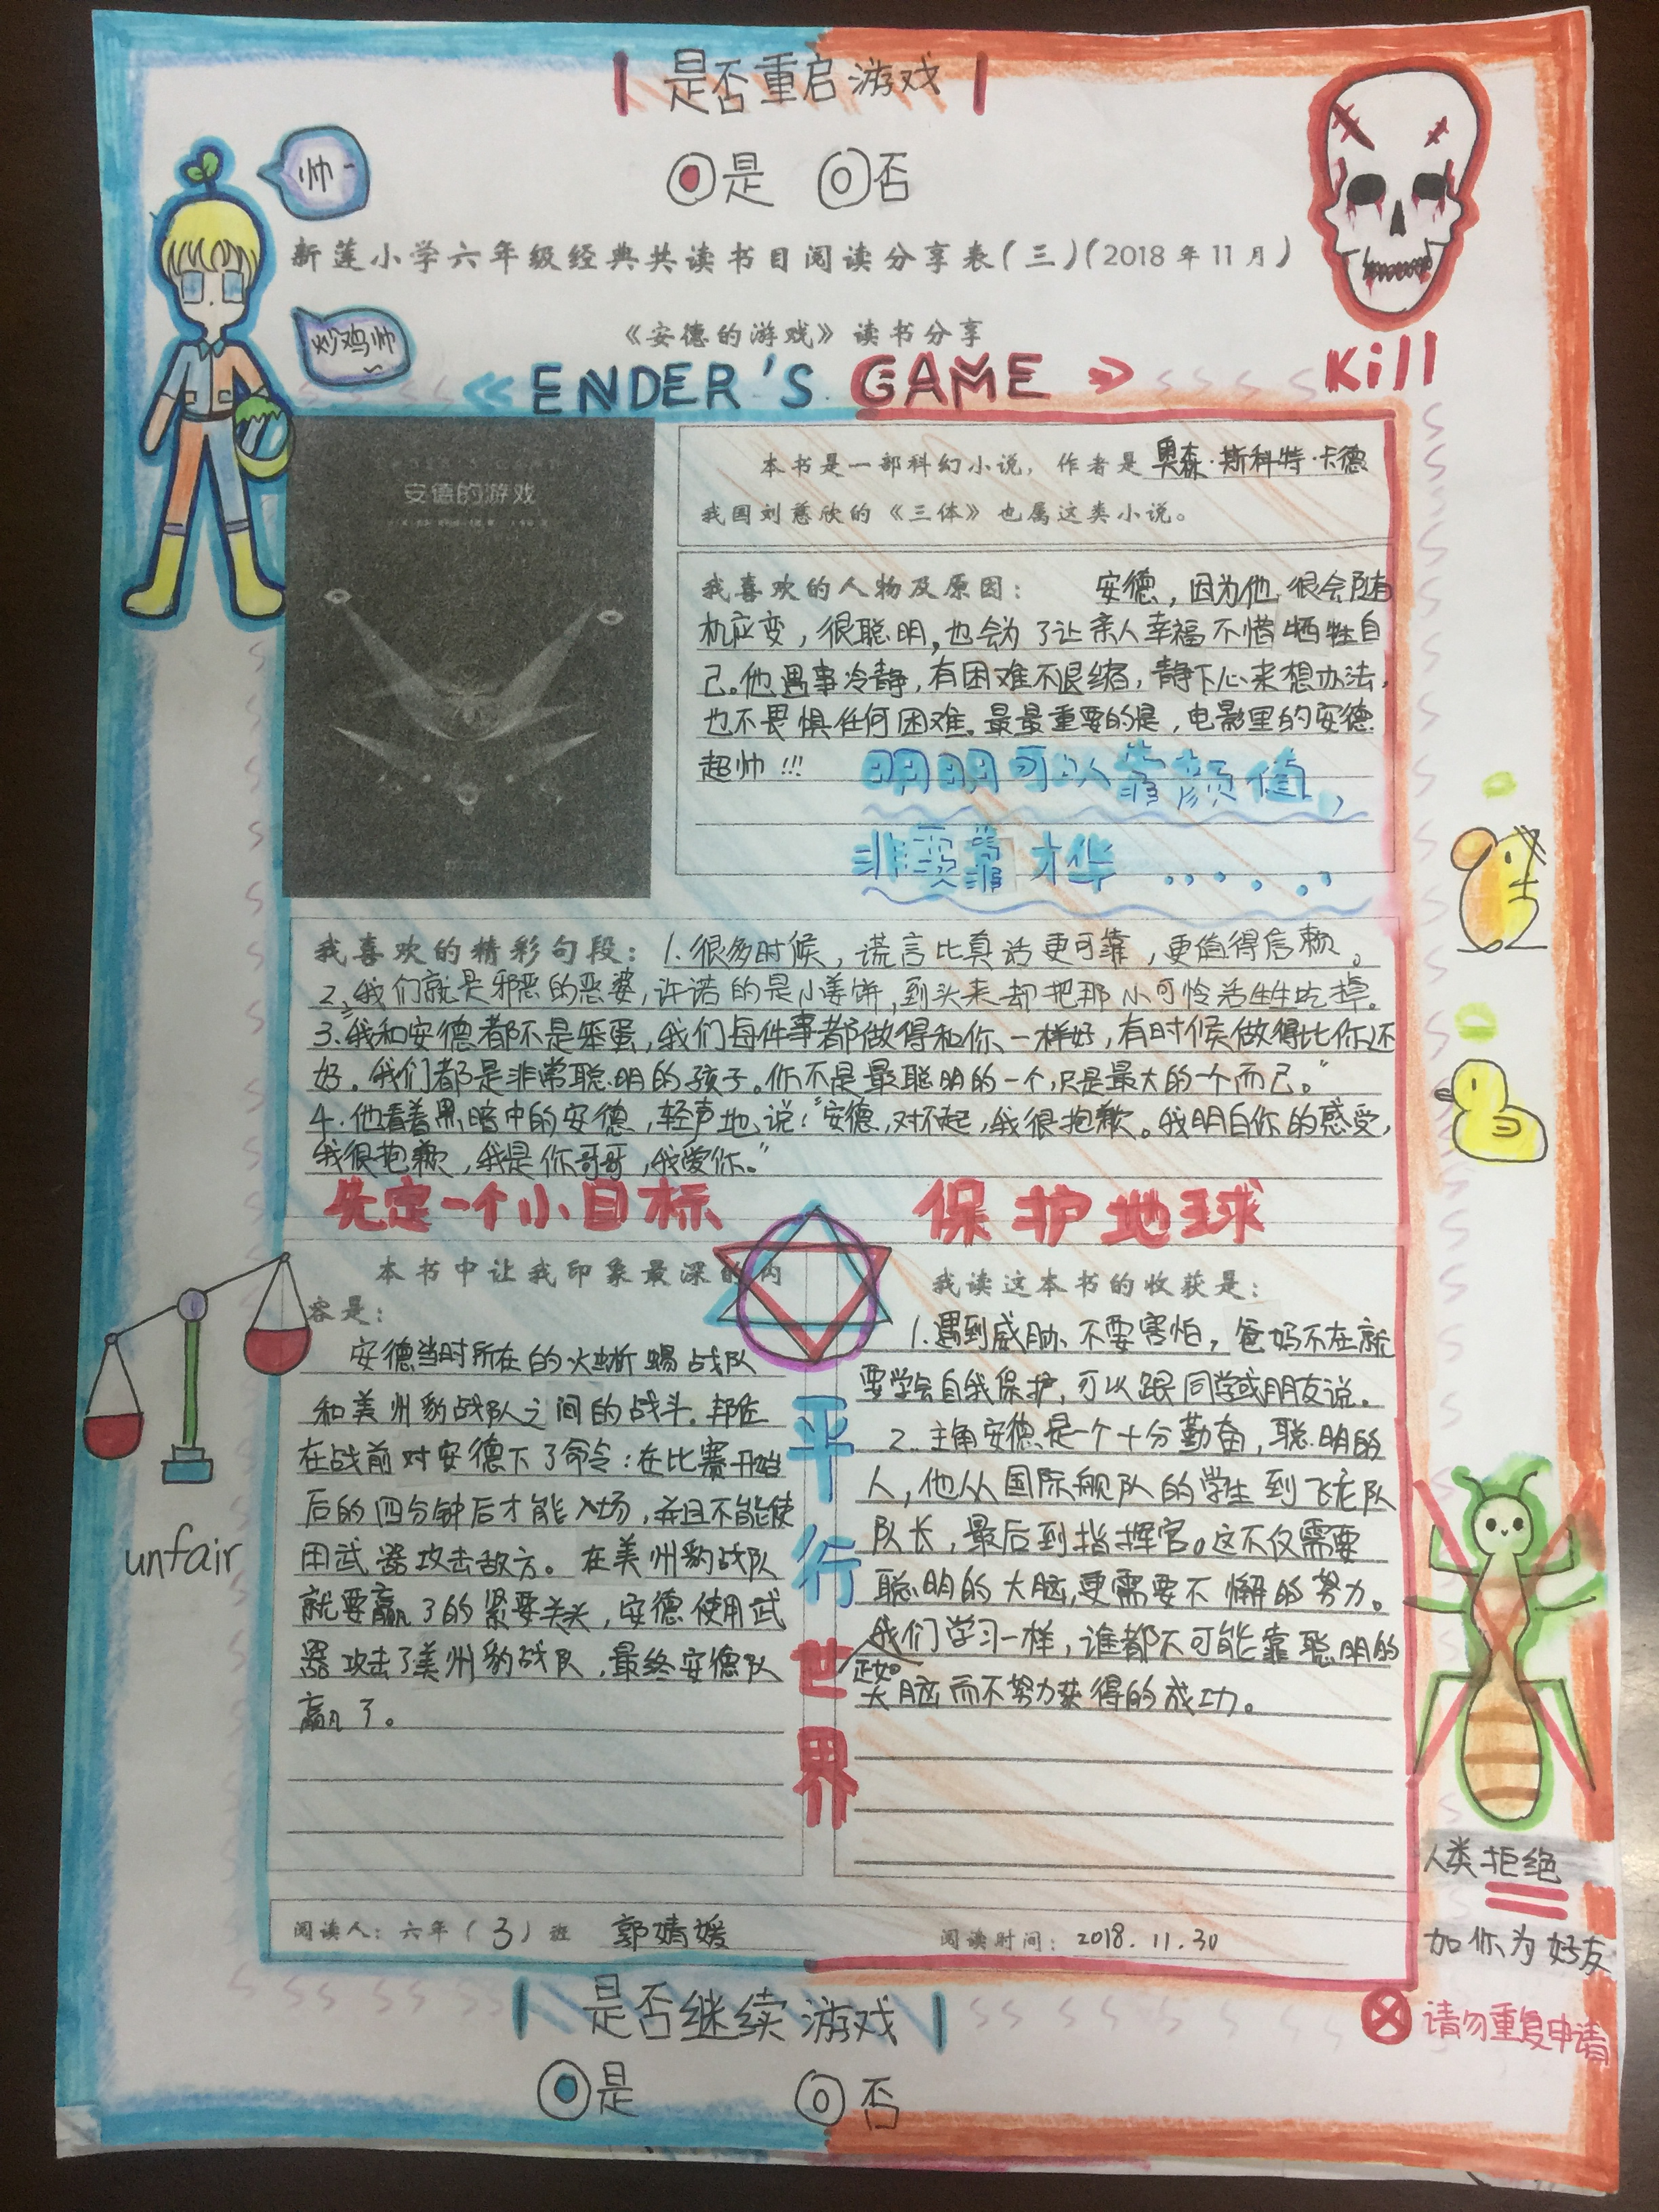 是否重启游戏
是 否
帅~
新莲小学六年级经典共读书目阅读分享表(三)(2018年11月)
炒鸡帅
《安德的游戏》读书分享
《ENDER'S GAME》
Kill
安德的游戏
本书是一部科幻小说，作者是 奥森·斯科特·卡德
我国刘慈欣的《三体》也属这类小说。
我喜欢的人物及原因： 安德，因为他很会随
机应变，很聪明，也会为了让亲人幸福不惜牺牲自
己。他遇事冷静，有困难不退缩，静下心来想办法，
也不畏惧任何困难。最最重要的是，电影里的安德
超帅!!!
明明可以靠颜值，
非要靠才华······
我喜欢的精彩句段： 1.很多时候，谎言比真话更可靠，更值得信赖。
2.我们就是邪恶的恶婆，许诺的是小姜饼，到头来却把那小可怜活生生吃掉。
3.“我和安德都不是笨蛋，我们每件事都做得和你一样好，有时候做得比你还
好。我们都是非常聪明的孩子。你不是最聪明的一个，只是最大的一个而已。”
4.他看着黑暗中的安德，轻声地说：“安德，对不起，我很抱歉。我明白你的感受，
我很抱歉，我是你哥哥，我爱你。”
先定一个小目标 保护地球
本书中让我印象最深的内
容是：
安德当时所在的火蜥蜴战队
和美州豹战队之间的战斗。邦佐
在战前对安德下了命令：在比赛开始
后的四分钟后才能入场，并且不能使
用武器攻击敌方。在美州豹战队
就要赢了的紧要关头，安德使用武
器攻击了美州豹战队，最终安德队
赢了。
平行世界
我读这本书的收获是：
1.遇到威胁不要害怕，爸妈不在就
要学会自我保护，可以跟同学或朋友说。
2.主角安德是一个十分勤奋，聪明的
人，他从国际舰队的学生到飞龙队
队长，最后到指挥官。这不仅需要
聪明的大脑，更需要不懈的努力。
正如我们学习一样，谁都不可能靠聪明的
大脑而不努力获得的成功。
unfair
人类拒绝
加你为好友
请勿重复申请
阅读人：六年（3）班 郭婧媛 阅读时间：2018.11.30
是否继续游戏
是 否